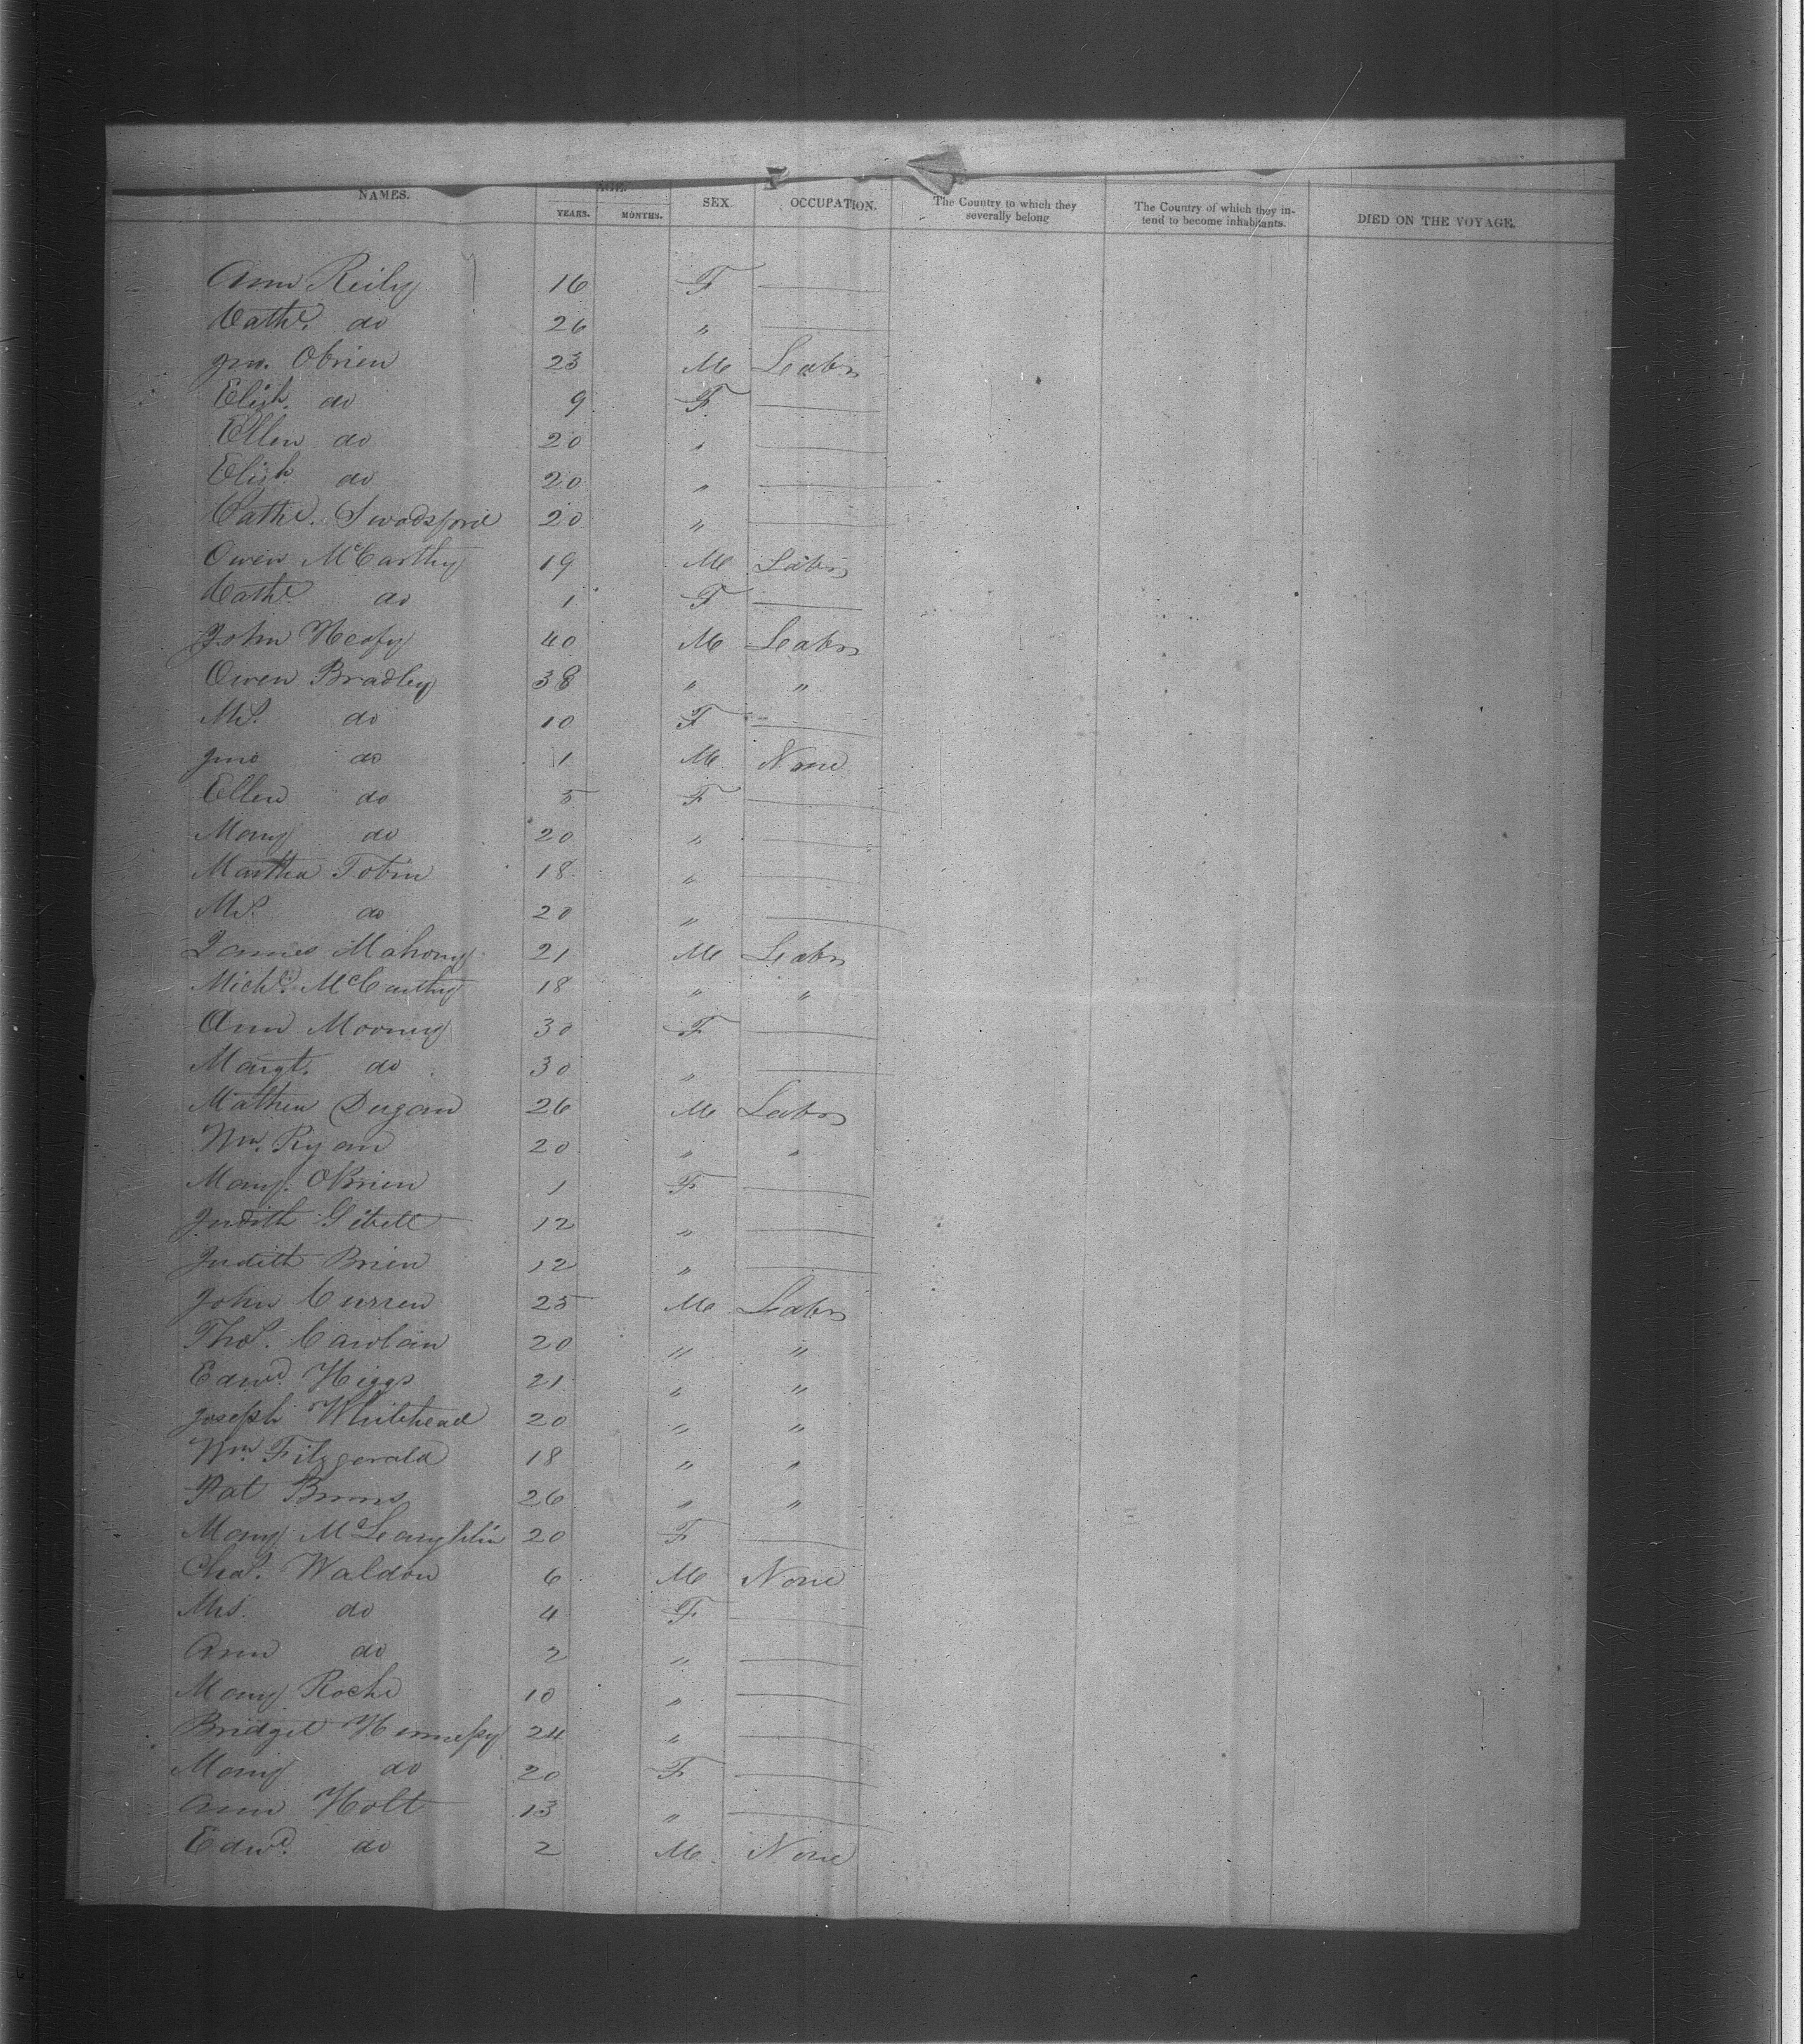 NAMES. AGE. SEX. OCCUPATION. The Country to which they severally belong The Country of which they intend to become inhabitants. DIED ON THE VOYAGE.
YEARS. MONTHS.
Ann Reily 16 F —
Cathe. do 26 " —
Jno. Obrien 23 M Labr
Elizh. do 9 F —
Ellen do 20 " —
Elizh do 20 " —
Cathe. 20 " —
Owen McCarthy 19 M Labr
Cathe. do 1 F —
John 40 M Labr
Owen Bradley 38 " "
Ms. do 10 F —
Jno do 1 M None
Ellen do 5 F —
Mary do 20 " —
Martha Tobin 18 " —
Ms. do 20 " —
James Mahony 21 M Labr
Michl. McCarthy 18 " "
Ann Mooney 30 F —
Margt. do 30 " —
Mathew Dugan 26 M Labr
Wm. Ryan 20 " "
Mary OBrien 1 F —
Judith 12 " —
Judith Brien 12 " —
John Curren 25 M Labr
Thos. 20 " "
Edwd. Higgs 21 " "
Joseph Whitehead 20 " "
Wm. Fitzgerald 18 " "
Pat 26 " "
Mary McLaughlin 20 F —
Chas. Waldon 6 M None
Mrs. do 4 F —
Ann do 2 " —
Mary Roche 10 " —
Bridget Hennesy 24 " —
Mary do 20 F —
Ann Holt 13 " —
Edwd. do 2 M. None